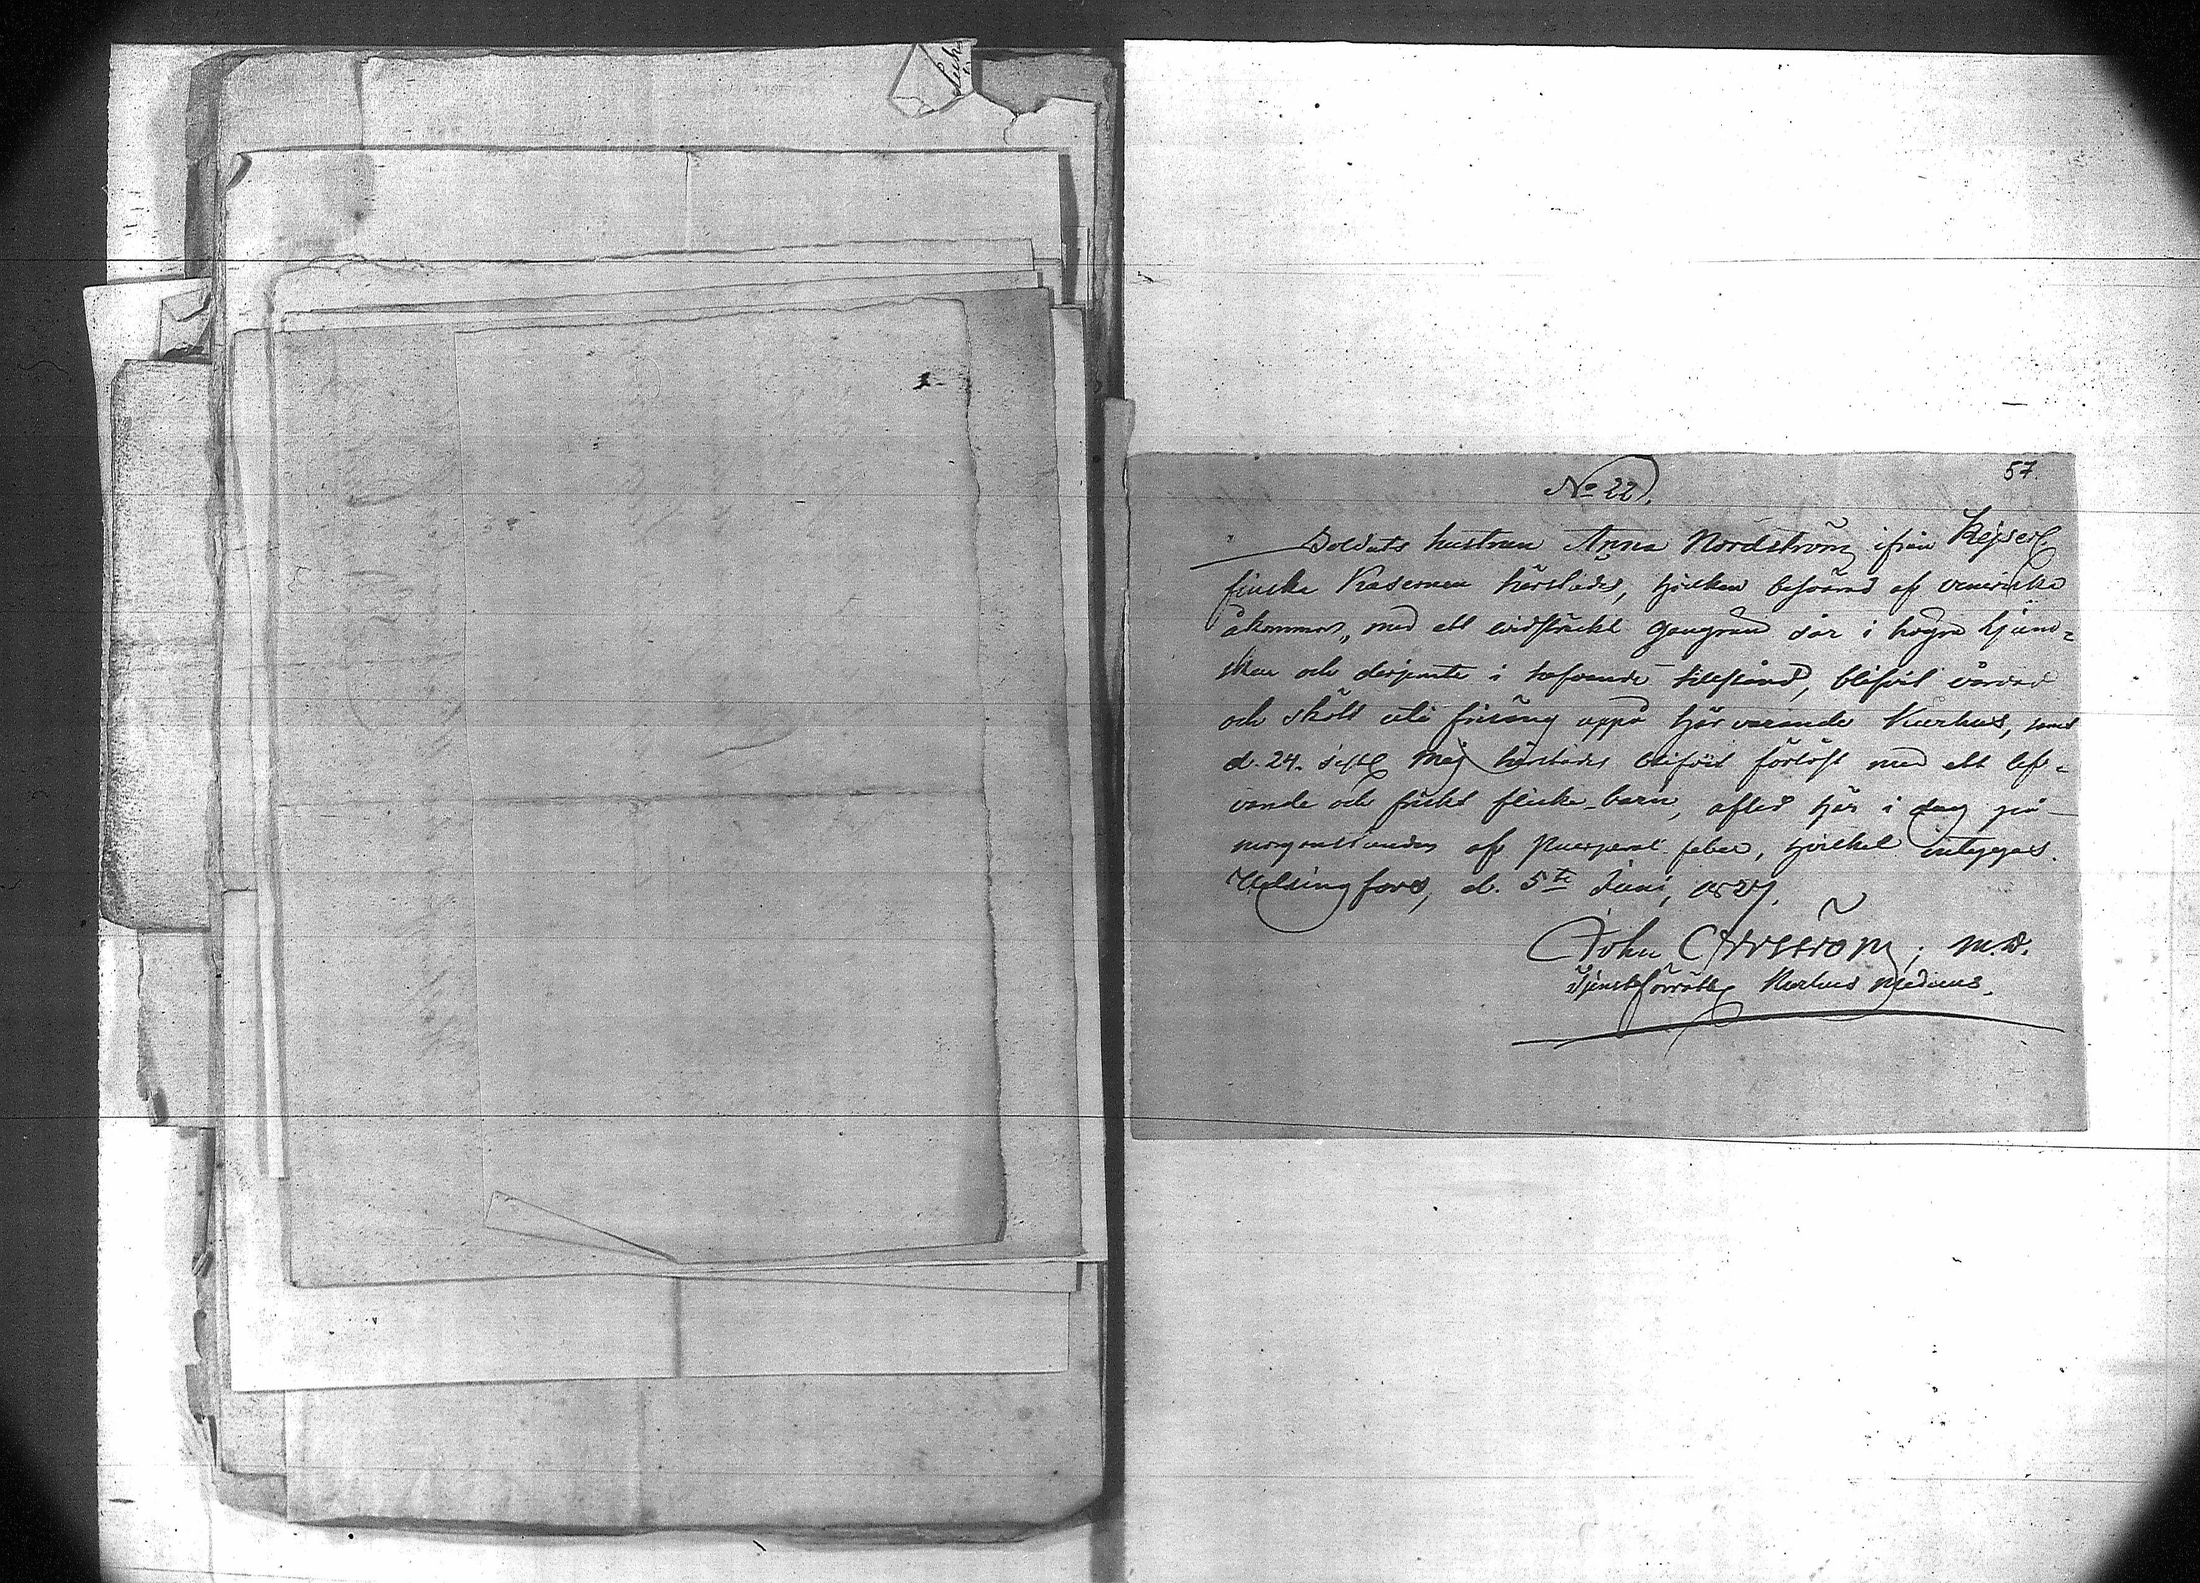 57.
No 22.
Soldats hustrun Anna Nordström ifrån Kejserl
finska Kasernen härstädes, hvilken besvärad af veneriska
åkommor, med ett vidsträckt gangrenö sår i högra ljum-
sken och derjemte i hafvande tillstånd, blifvit vårdad
och skött uti frisäng uppå härvarande Kurhus, samt
d. 24. sistl Maj härstädes blifvit förlöst med ett lef-
vande och friskt flicke-barn, afled här i dag på
morgonstunden af Puerperal feber, hvilket intygas.
Helsingfors, d. 5te Juni, 1827.
John M.D.
Tjensteförrätt Kurhus Medicus.